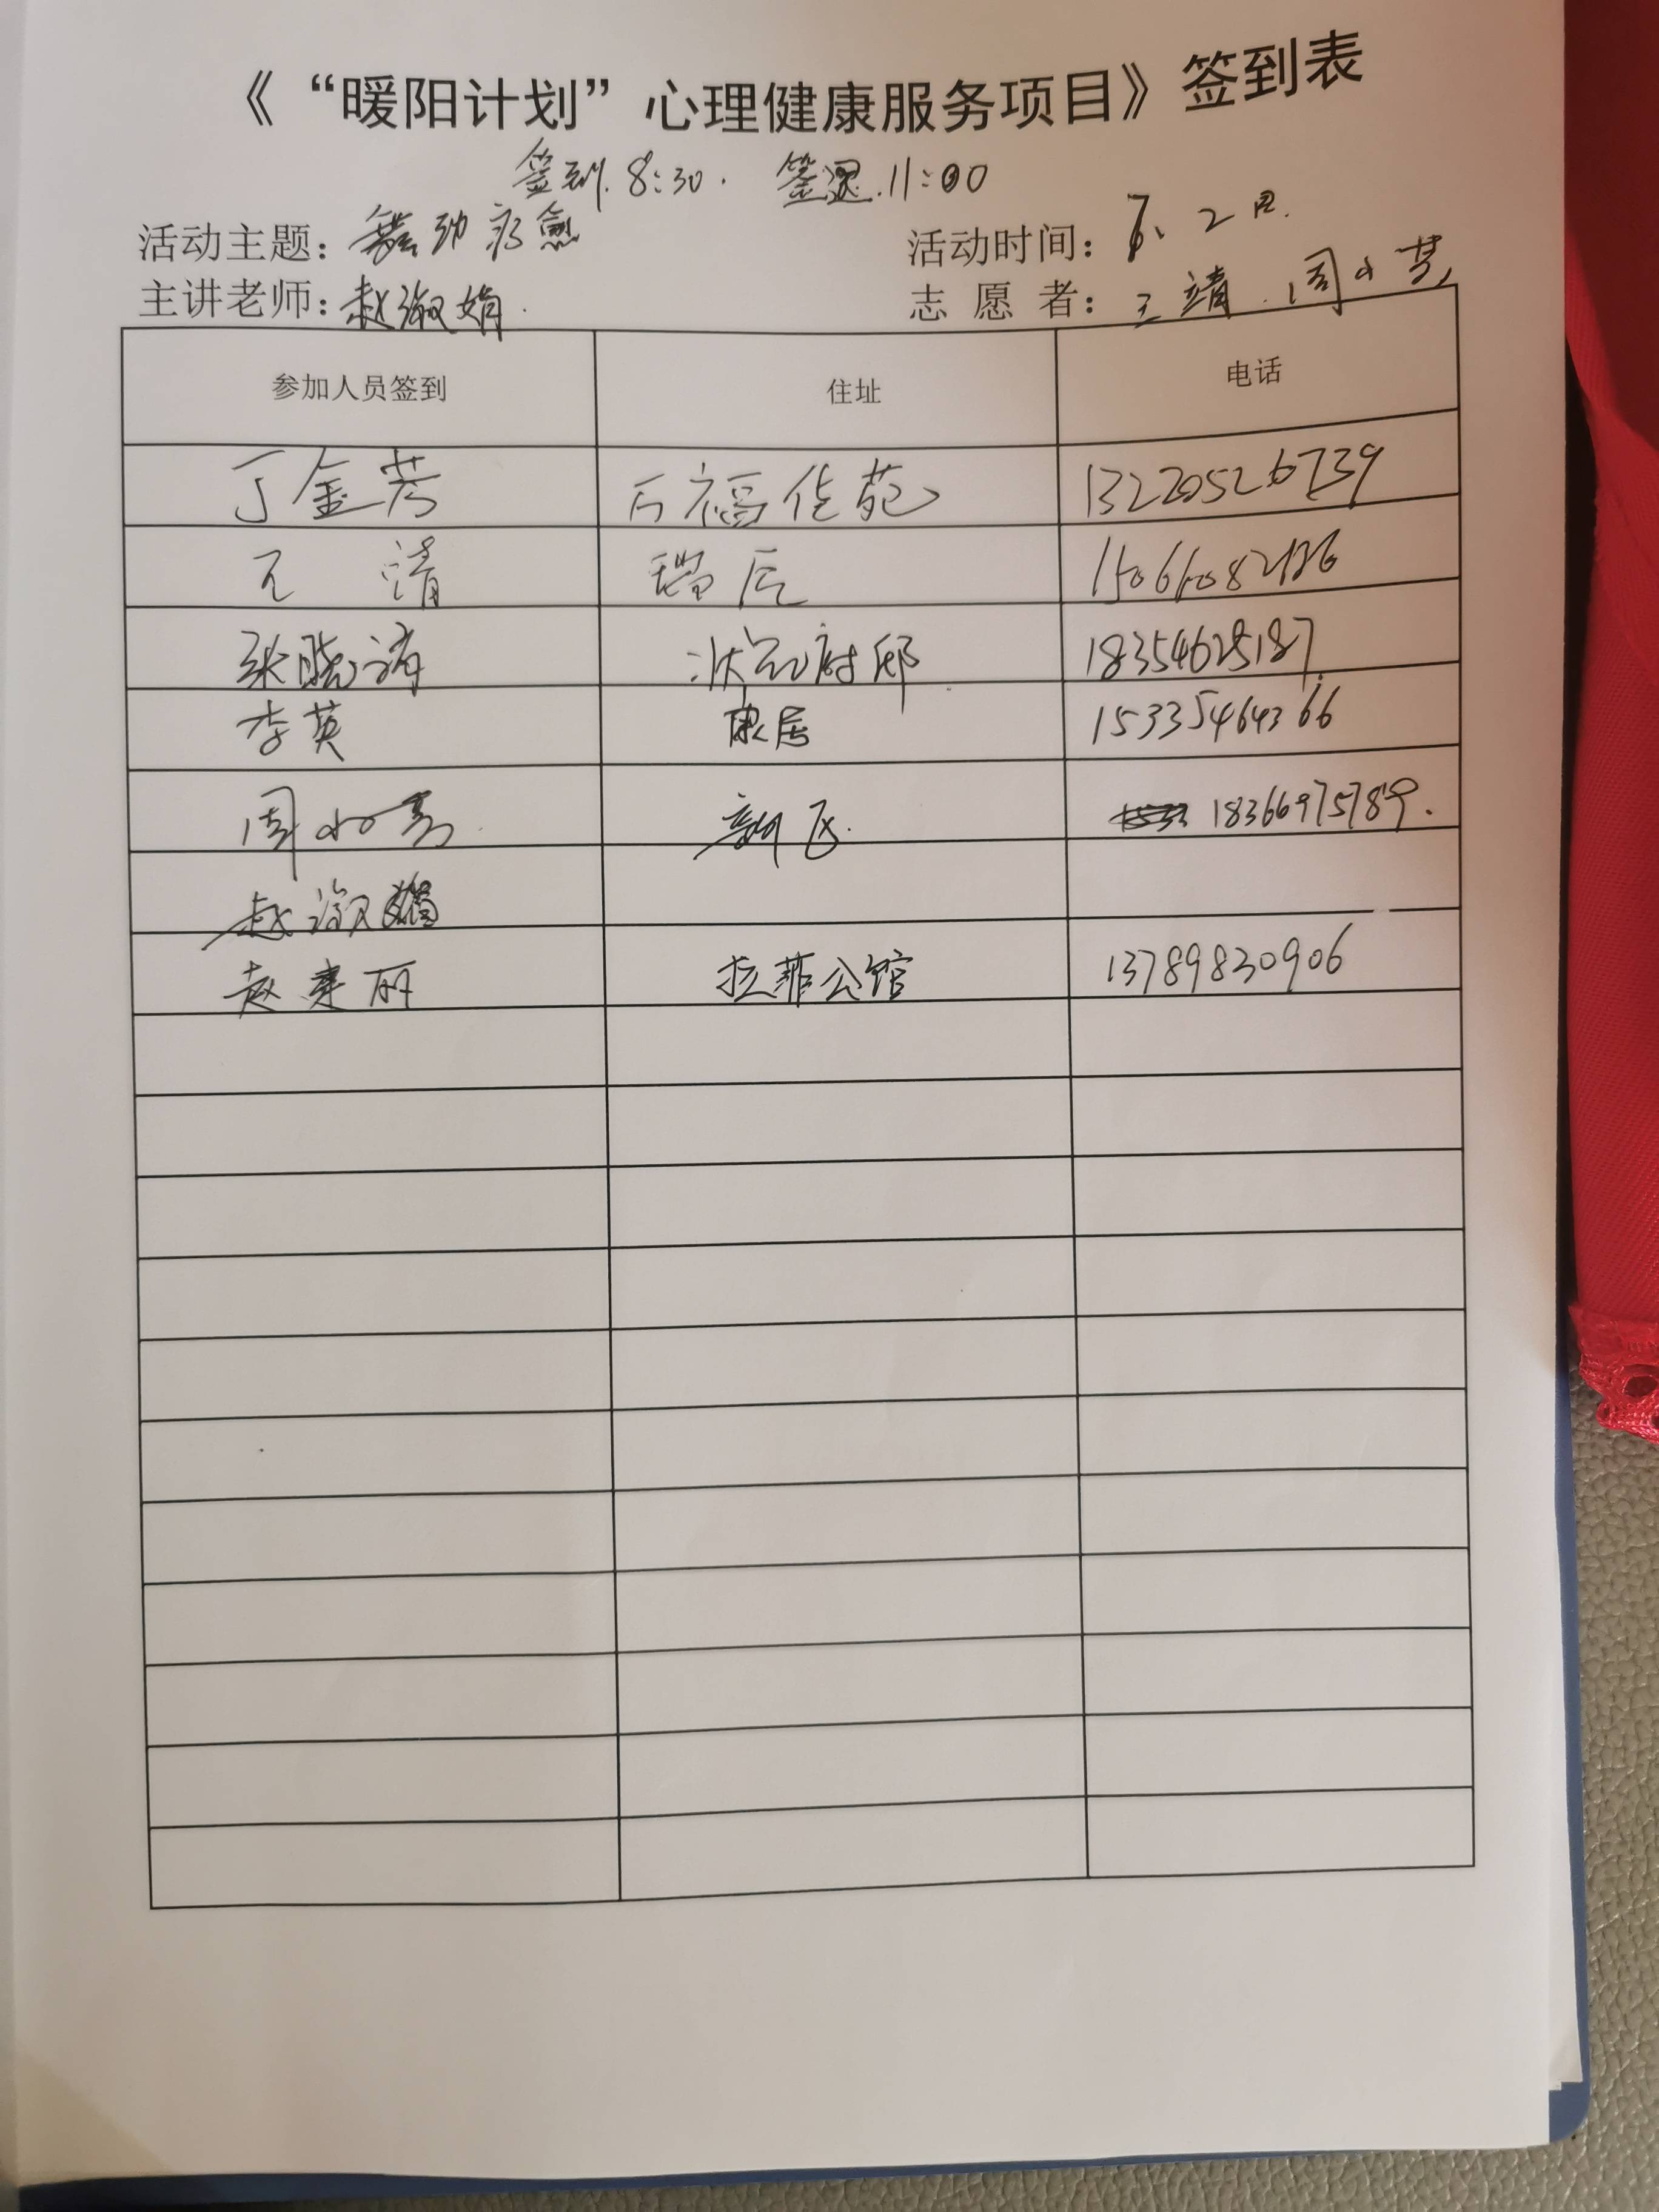 《“暖阳计划”心理健康服务项目》签到表
签到.8:30. 签退.11:00
活动主题：舞动疗愈 活动时间： 2日.
主讲老师：赵淑娟. 志愿者：王靖.周小
参加人员签到 住址 电话
丁金芳 万福佳苑 13220526739
王靖 瑞辰
张晓 状元府邸 18354625187
李英 康居 15335464366
周小 新区. 18366975789.
赵淑娟
赵建丽 拉菲公馆 13789830906